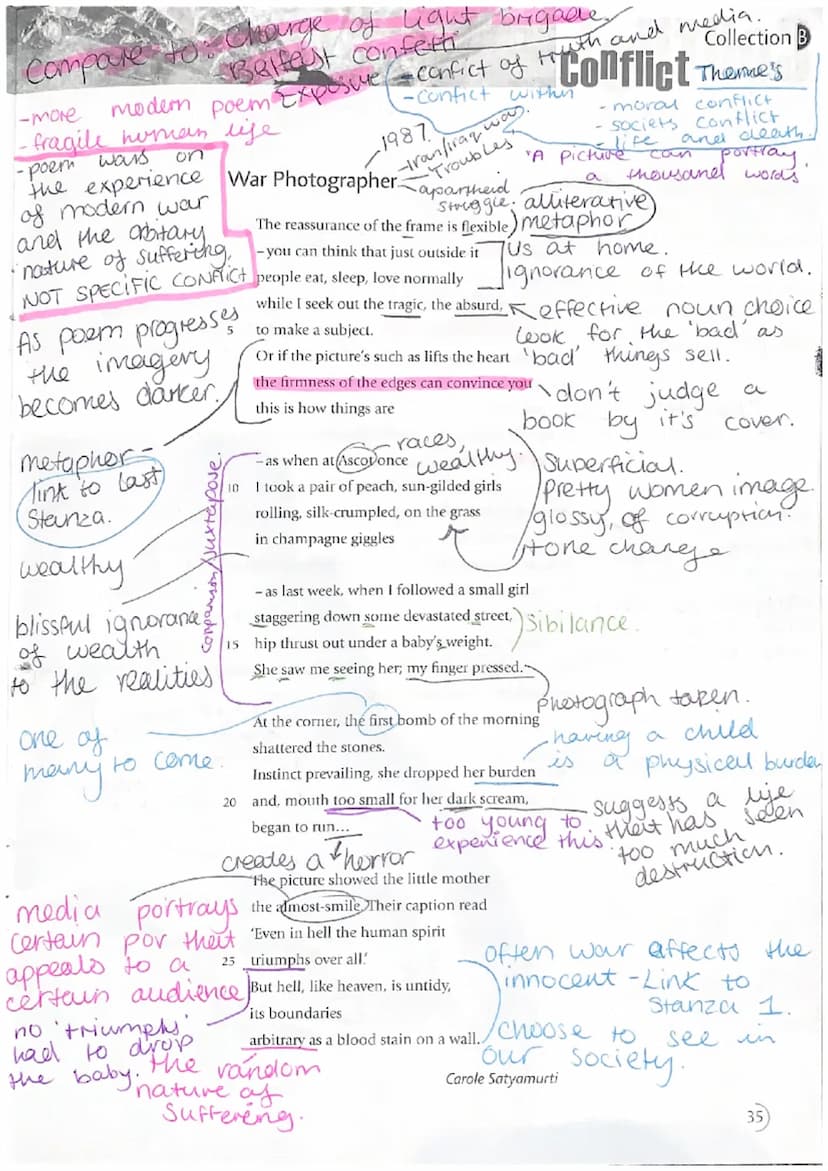 Compare to: Charge of light brigade.
Belfast confetti
Exposure
Collection B
Conflict
Theme's
-conflict of truth and media.
-conflict within
- moral conflict
- societs conflict
- life and death.
-more modern poem
-fragile human life
1987.
-Iran/Iraq war
-Troubles
-apartheid
struggle.
'A picture can portray
a thousand words'
-poem wars on
the experience
of modern war
and the arbitary
nature of suffering.
NOT SPECIFIC CONFLICT
War Photographer
alliterative
metaphor
The reassurance of the frame is flexible
– you can think that just outside it
people eat, sleep, love normally
while I seek out the tragic, the absurd,
5 to make a subject.
Or if the picture's such as lifts the heart
the firmness of the edges can convince you
this is how things are
us at home.
ignorance of the world.
effective noun choice
look for the 'bad' as
'bad' things sell.
don't judge a
book by it's cover.
As poem progresses
the imagery
becomes darker.
metaphor-
link to last
stanza.
wealthy
blissful ignorance
of wealth
to the realities
comparison/juxtapose.
– as when at Ascot once
10 I took a pair of peach, sun-gilded girls
rolling, silk-crumpled, on the grass
in champagne giggles
races,
wealthy.
Superficial.
pretty women image.
glossy, of corruption.
tone change
– as last week, when I followed a small girl
staggering down some devastated street,
15 hip thrust out under a baby's weight.
She saw me seeing her; my finger pressed.
Sibilance.
photograph taken.
At the corner, the first bomb of the morning
shattered the stones.
Instinct prevailing, she dropped her burden
20 and, mouth too small for her dark scream,
began to run...
one of
many to come.
having a child
is a physical burden
too young to
experience this.
suggests a life
that has seen
too much
destruction.
creates a horror
The picture showed the little mother
the almost-smile. Their caption read
'Even in hell the human spirit
25 triumphs over all.'
But hell, like heaven, is untidy,
its boundaries
arbitrary as a blood stain on a wall.
Carole Satyamurti
media portrays
certain pov that
appeals to a
certain audience
no 'triumphs'
had to drop
the baby.
the random
nature of
suffering.
often war affects the
innocent - Link to
Stanza 1.
choose to see in
our society.
35